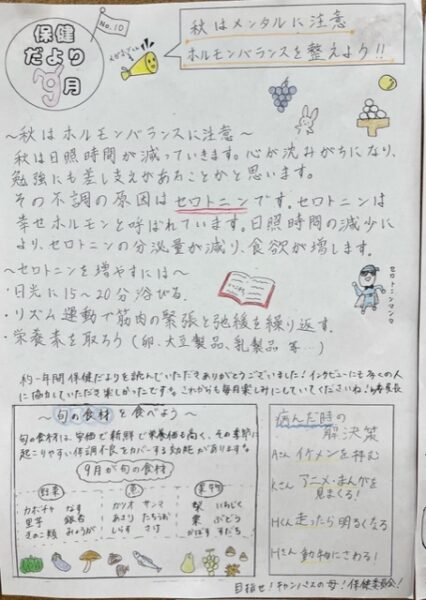 No.10
保健
だより
9月
秋はメンタルに注意
ホルモンバランスを整えよう!!
～秋はホルモンバランスに注意～
秋は日照時間が減っていきます。心が沈みがちになり、
勉強にも差し支えがあることかと思います。
その不調の原因はセロトニンです。セロトニンは
幸せホルモンと呼ばれています。日照時間の減少に
より、セロトニンの分泌量が減り、食欲が増します。
～セロトニンを増やすには～
・日光に15～20分浴びる。
・リズム運動で筋肉の緊張と弛緩を繰り返す。
・栄養素を取ろう(卵、大豆製品、乳製品 等…)
セロトニンマン
約一年間 保健だよりを読んでいただきありがとうございました!インタビューにも多くの人
に協力していただき楽しかったです。これからも毎月楽しみにしていてくださいね!
～旬の食材を食べよう～
旬の食材は、安価で新鮮で栄養価も高く、その季節に
起こりやすい体調不良をカバーする効能があります。
9月が旬の食材
野菜
カボチャ なす
里芋 銀杏
きのこ類 みょうが
魚
カツオ サンマ
あさり たちうお
しらす さけ
果物
梨 いちじく
栗 ぶどう
かぼす すだち
病んだ時の
解決策
Aさん イケメンを拝む
Kさん アニメ・まんがを
見まくる!
Hくん 走ったら明るくなる
Hさん 動物にさわる!
目指せ!キャンパスの母!保健委員会!